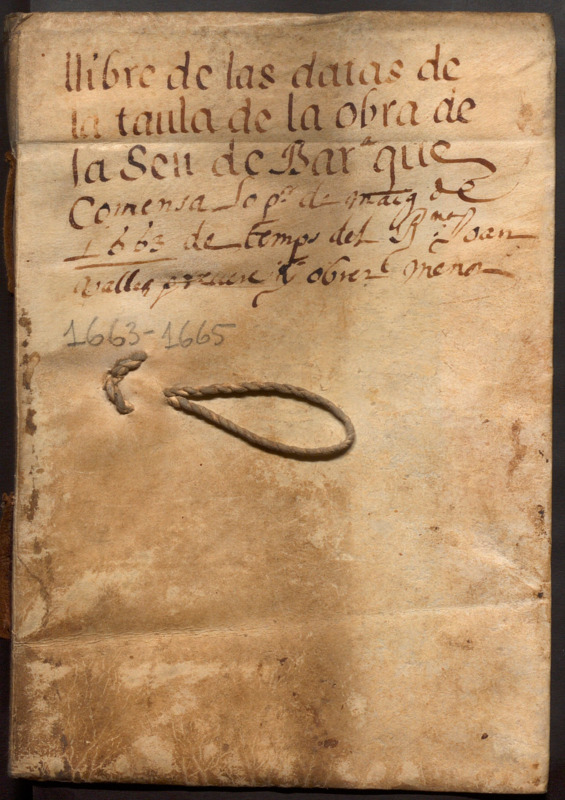 llibre de las datas de
la taula de la obra de
la Seu de Bar.ª que
Comensa lo p.r de maig de
1663 de temps del R.nt Joan
Valles prevere y obrer menor
1663-1665